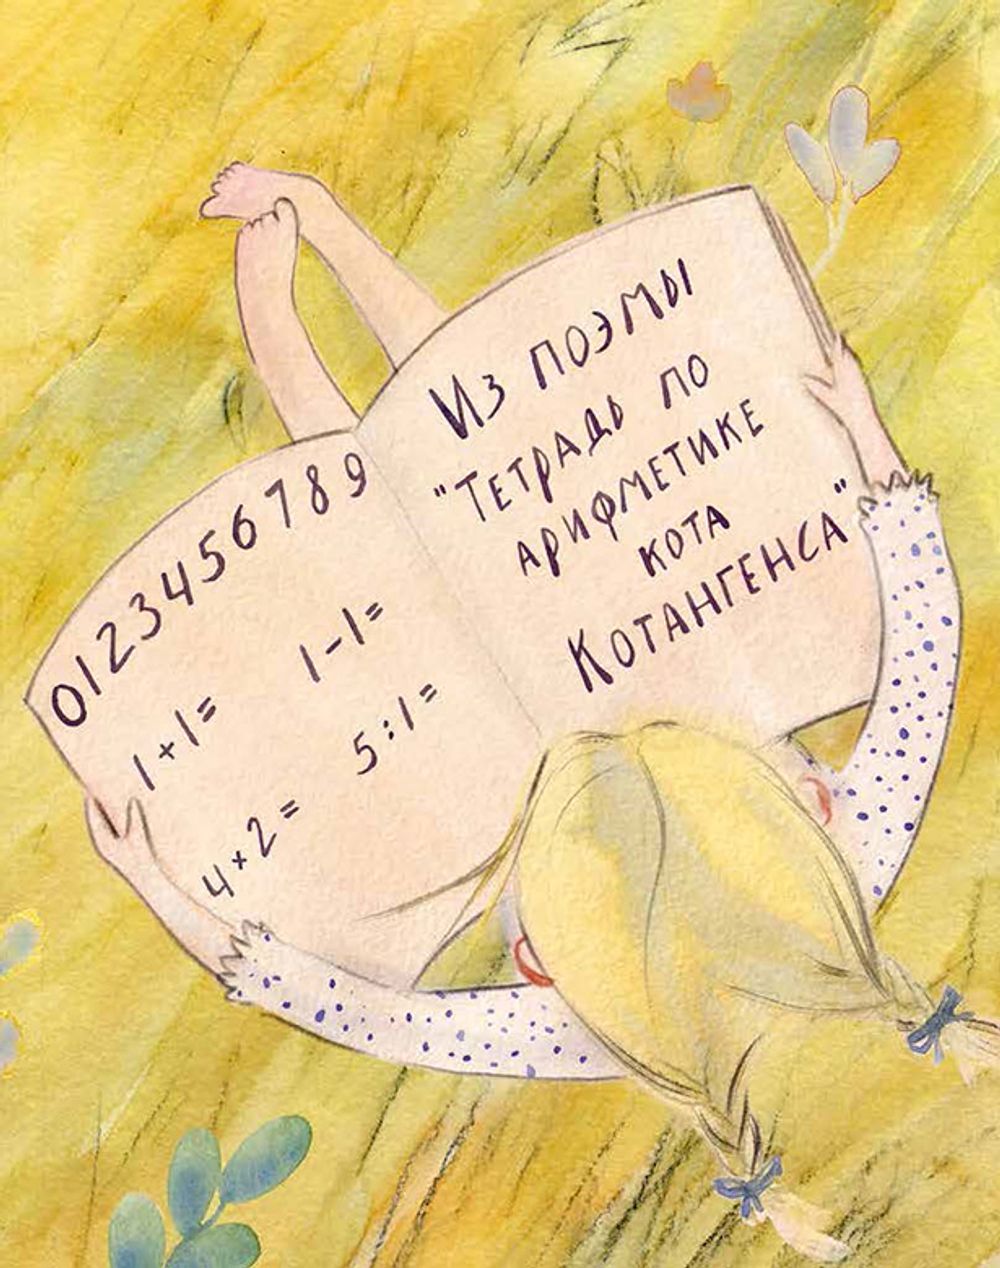 0123456789
1+1=
1-1=
5:1=
4×2=
Из поэмы
"Тетрадь по
арифметике
кота
Котангенса"